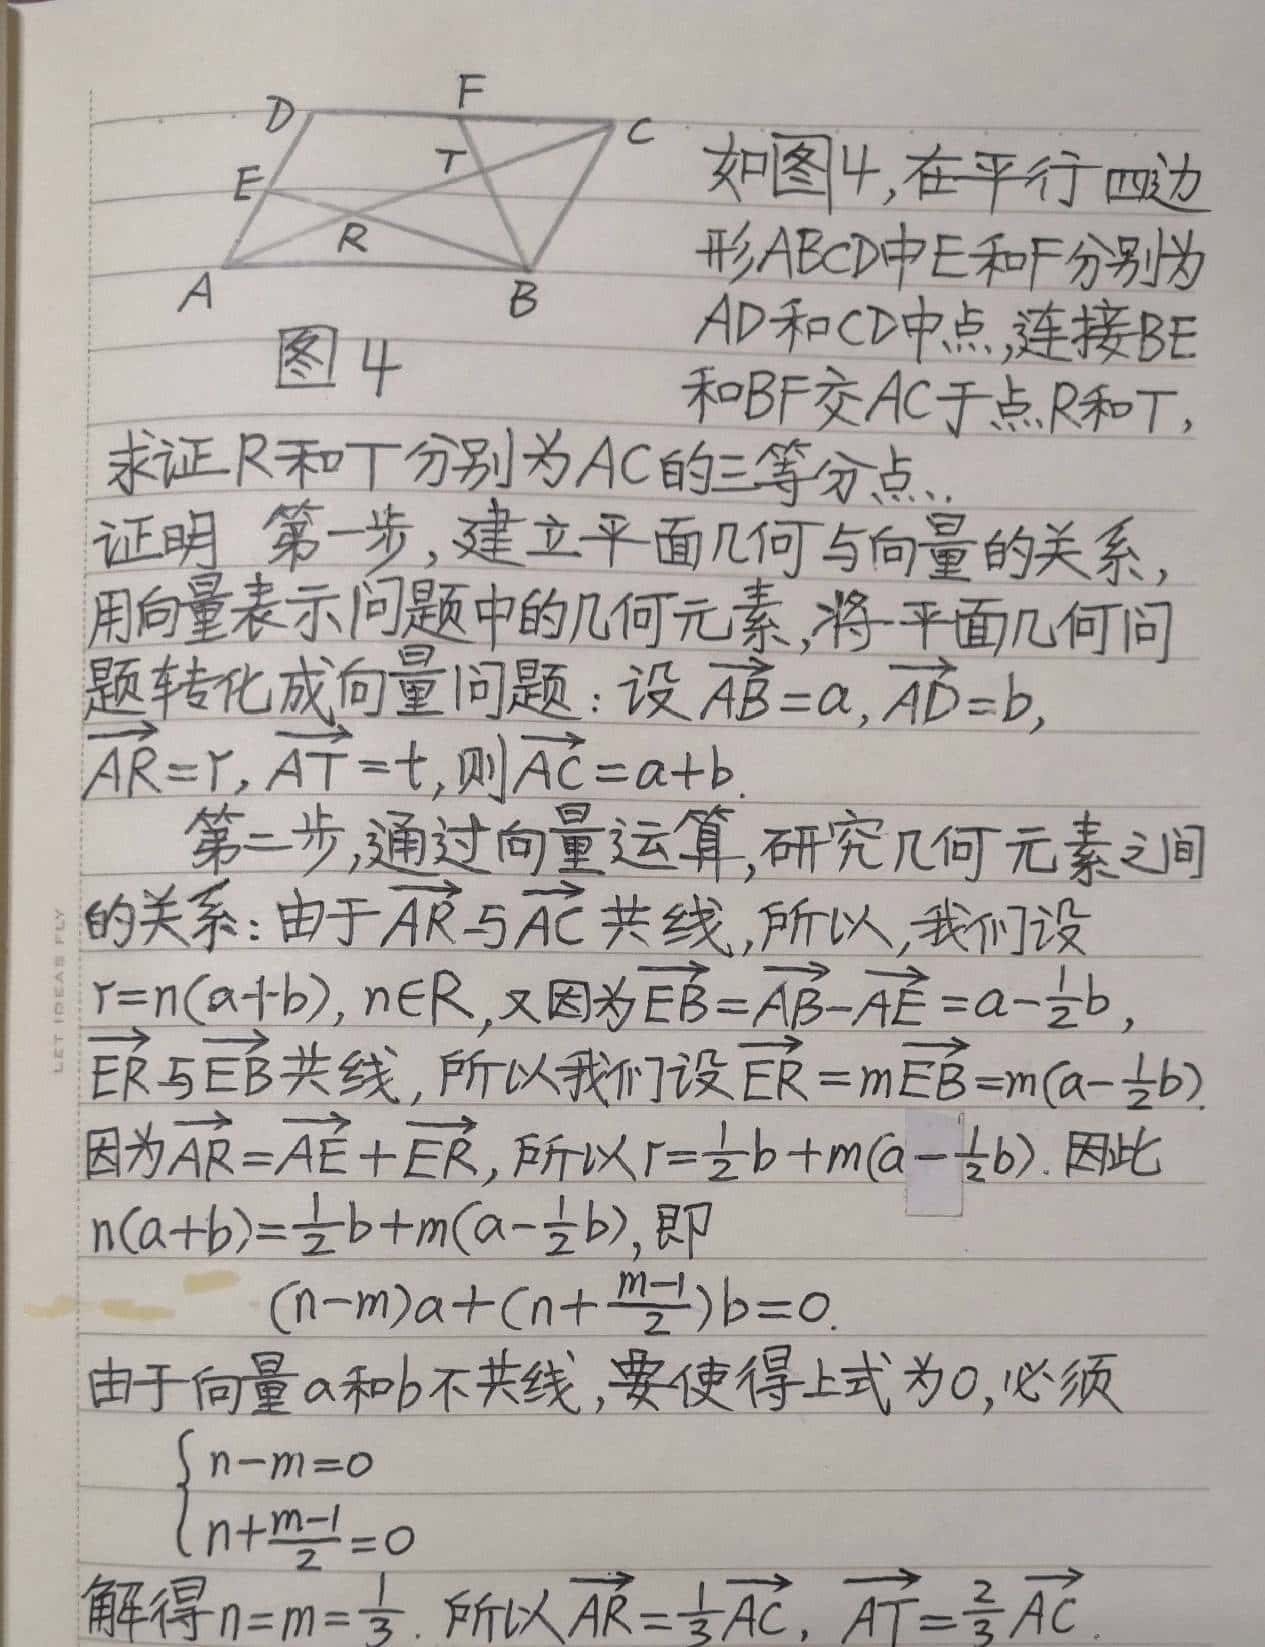 D
F
C
E
T
R
A
B
图4
如图4,在平行四边
形ABCD中E和F分别为
AD和CD中点,连接BE
和BF交AC于点R和T,
求证R和T分别为AC的三等分点.
证明 第一步,建立平面几何与向量的关系,
用向量表示问题中的几何元素,将平面几何问
题转化成向量问题:设$\overrightarrow{AB}$=a,$\overrightarrow{AD}$=b,
$\overrightarrow{AR}$=r,$\overrightarrow{AT}$=t,则$\overrightarrow{AC}$=a+b.
第二步,通过向量运算,研究几何元素之间
的关系:由于$\overrightarrow{AR}$与$\overrightarrow{AC}$共线,所以,我们设
r=n(a+b),n∈R,又因为$\overrightarrow{EB}$=$\overrightarrow{AB}$-$\overrightarrow{AE}$=a-$\frac{1}{2}$b,
$\overrightarrow{ER}$与$\overrightarrow{EB}$共线,所以我们设$\overrightarrow{ER}$=m$\overrightarrow{EB}$=m(a-$\frac{1}{2}$b).
因为$\overrightarrow{AR}$=$\overrightarrow{AE}$+$\overrightarrow{ER}$,所以r=$\frac{1}{2}$b+m(a-$\frac{1}{2}$b).因此
n(a+b)=$\frac{1}{2}$b+m(a-$\frac{1}{2}$b),即
(n-m)a+(n+$\frac{m-1}{2}$)b=0.
由于向量a和b不共线,要使得上式为0,必须
n-m=0
n+$\frac{m-1}{2}$=0
解得n=m=$\frac{1}{3}$.所以$\overrightarrow{AR}$=$\frac{1}{3}$$\overrightarrow{AC}$,$\overrightarrow{AT}$=$\frac{2}{3}$$\overrightarrow{AC}$.
LET IDEAS FLY